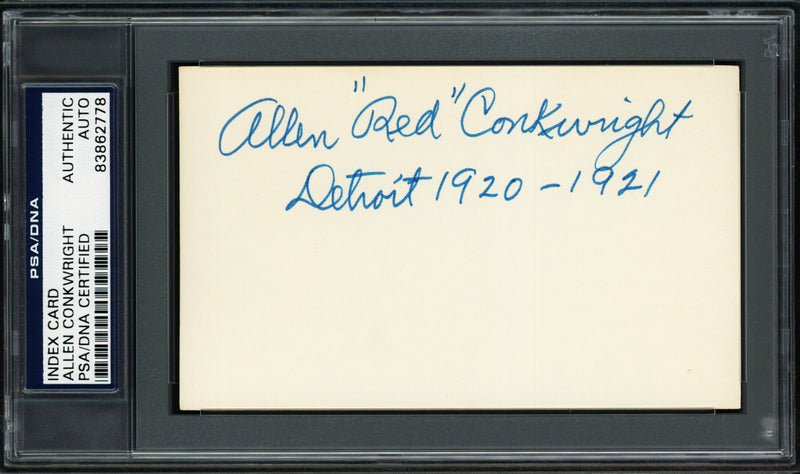 Allen "Red" Conkwright
Detroit 1920 - 1921
PSA/DNA
INDEX CARD
ALLEN CONKWRIGHT
PSA/DNA CERTIFIED
AUTHENTIC
AUTO
83862778